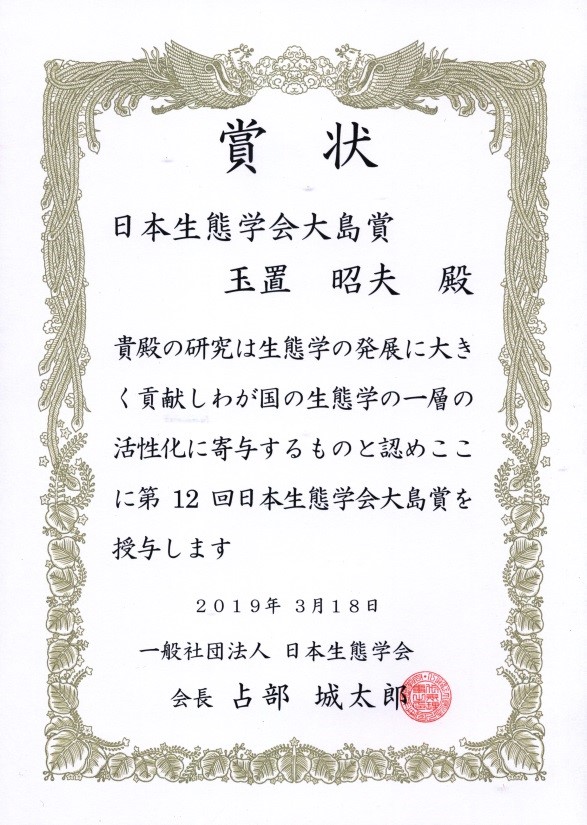 賞 状
日本生態学会大島賞
玉置 昭夫 殿
貴殿の研究は生態学の発展に大き
く貢献しわが国の生態学の一層の
活性化に寄与するものと認めここ
に第 12 回日本生態学会大島賞を
授与します
2019年 3月18日
一般社団法人 日本生態学会
会長 占部 城太郎